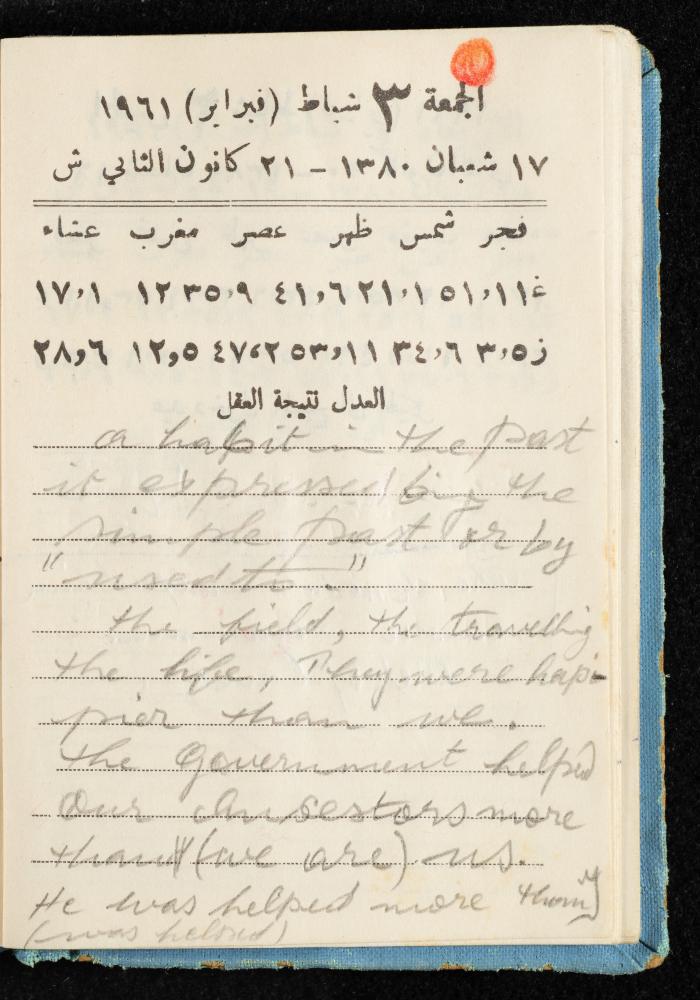 الجمعة ٣ شباط (فبراير) ١٩٦١
١٧ شعبان ١٣٨٠ – ٢١ كانون الثاني ش
فجر شمس ظهر عصر مغرب عشاء
غ ١١,٥١ ١,٢١ ٦,٤١ ٩,٣٥ ١٢ ١,١٧
ز ٥,٠٣ ٦,٣٤ ١١,٥٣ ٢,٤٧ ٥,١٢ ٦,٢٨
العدل نتيجة العقل
a habit in the past
it expressed by the
simple past or by
"used to."
the field, the travelling
the life, They were hapi-
pier than we.
the Government helped
Our Ansestors more
than (we are) us.
He was helped more than I
(was helped)